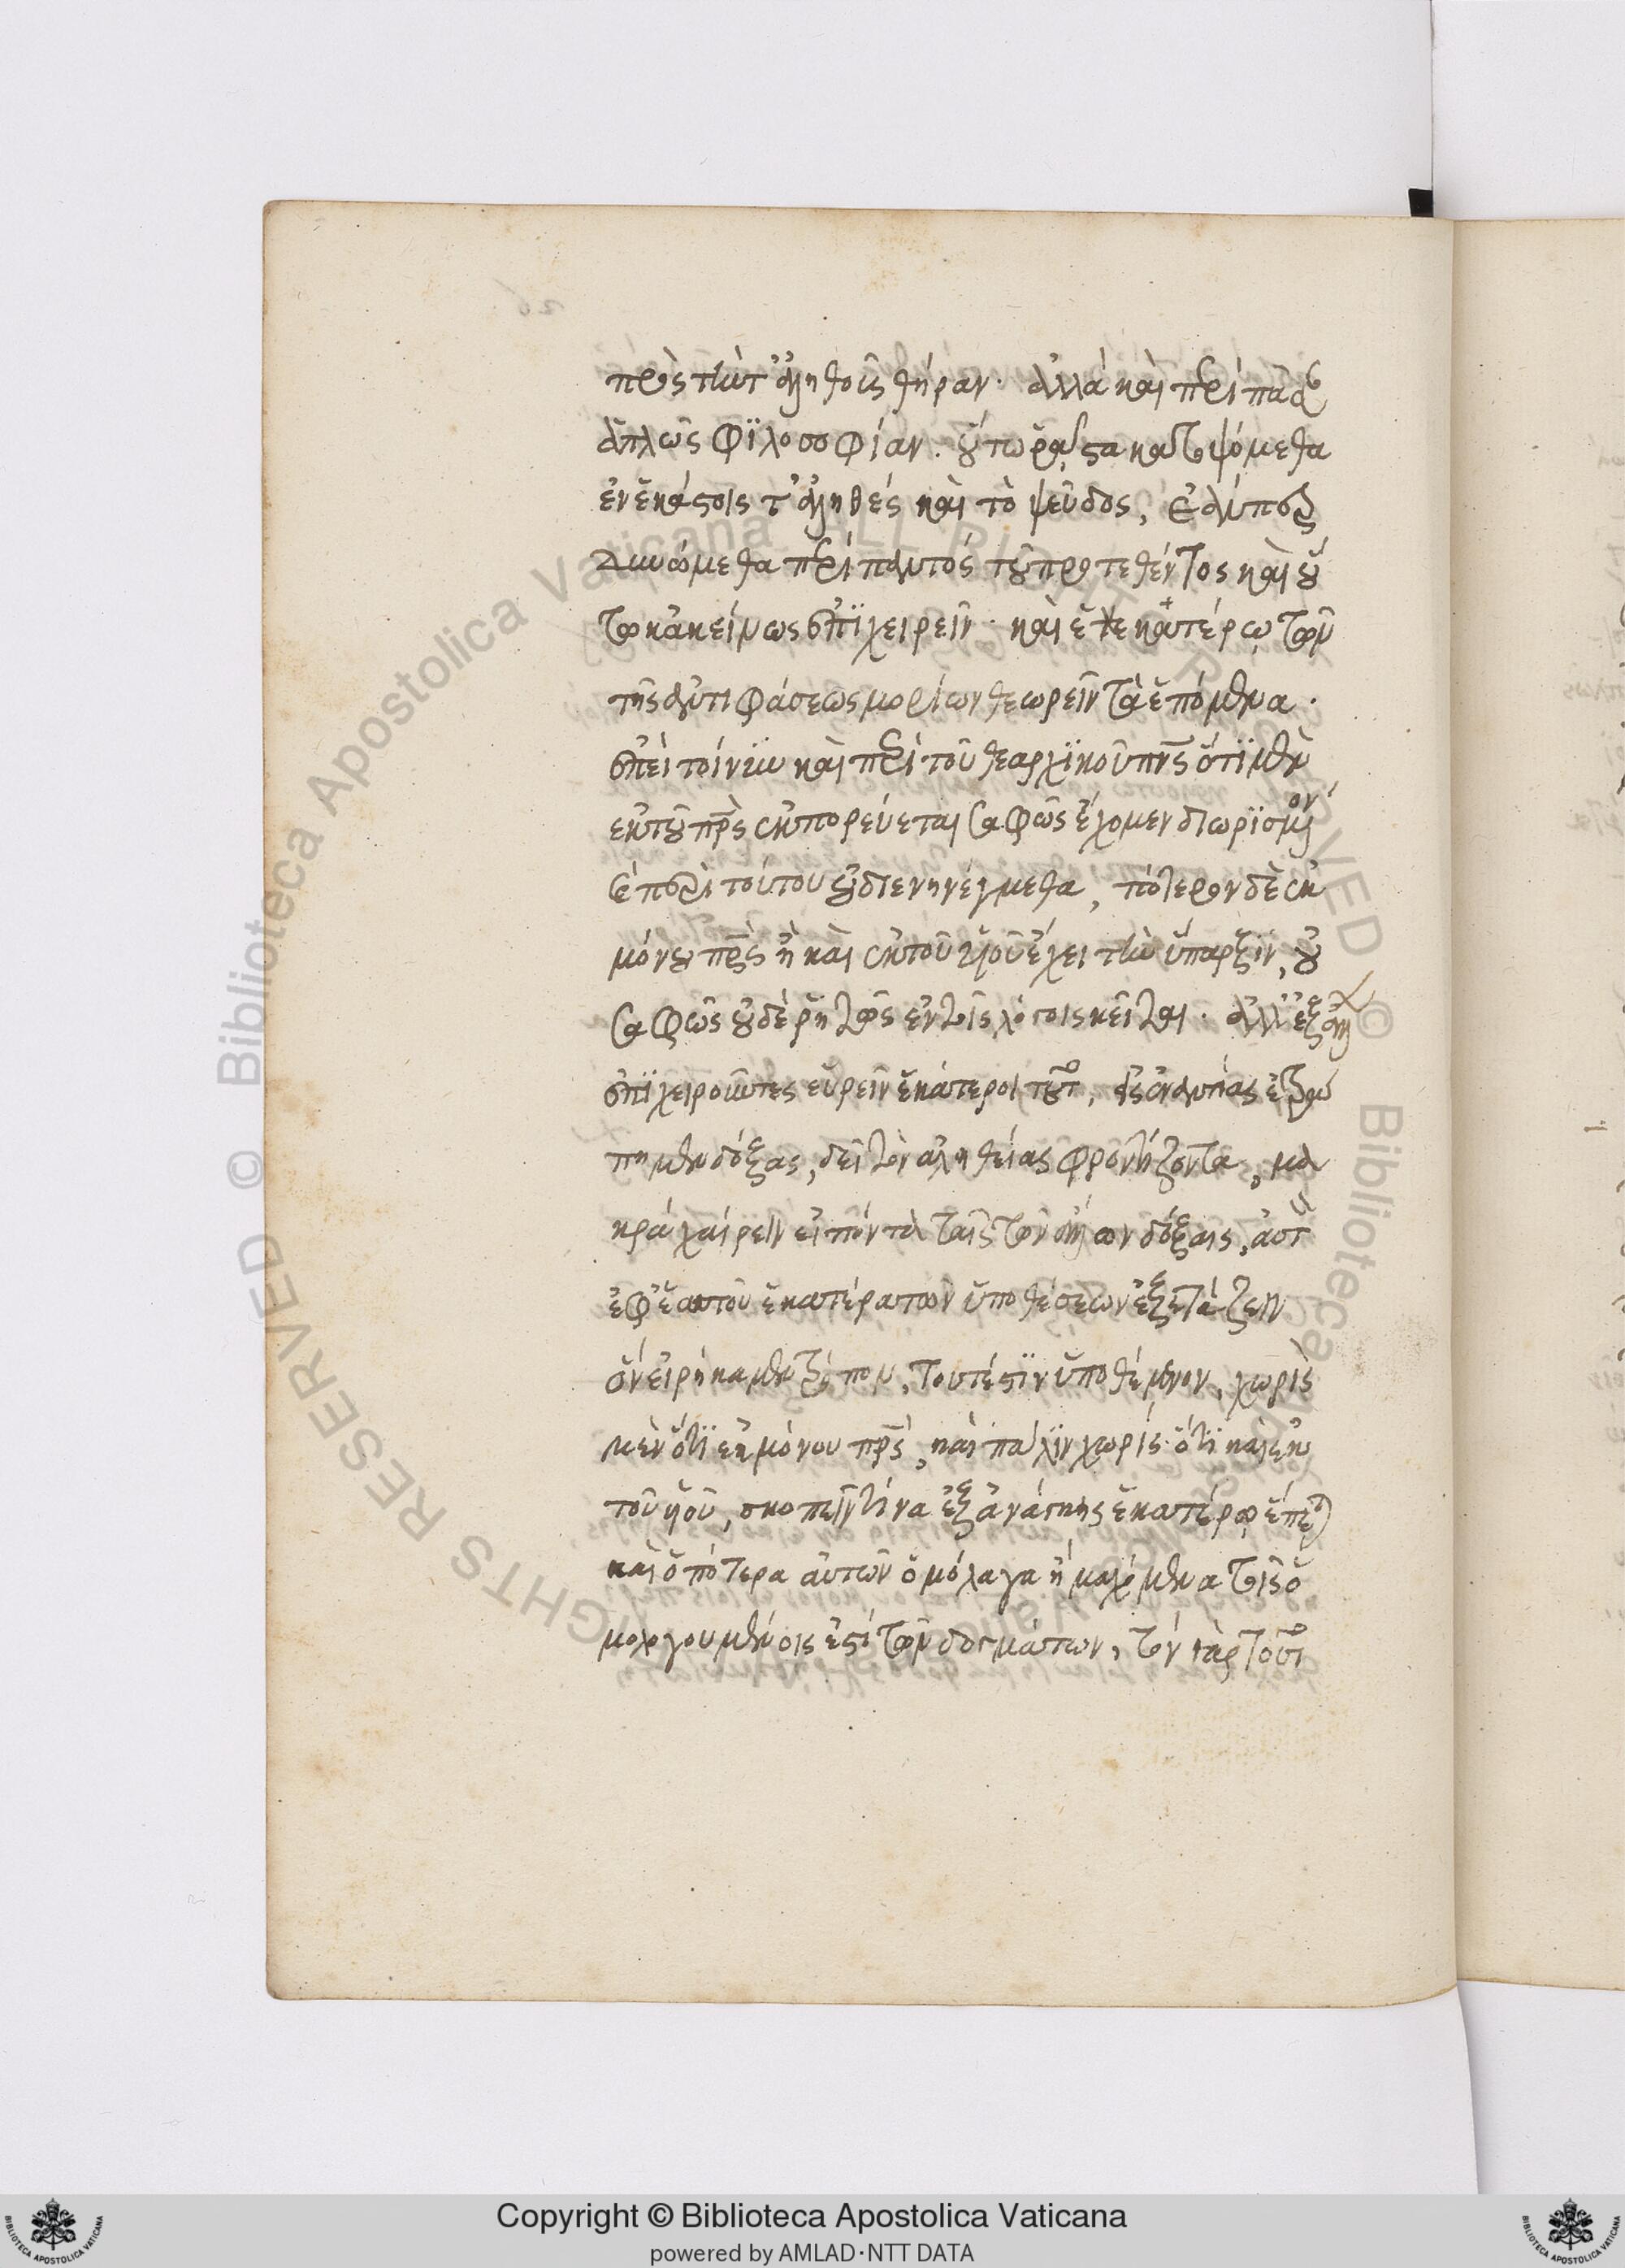 πρὸς τὴν τἀληθοῦς θήραν· ἀλλὰ καὶ περὶ πᾶσαν
ἁπλῶς φϊλοσοφίαν. οὕτω ῥᾷστα κατοψόμεθα
ἐν ἑκάστοις τἀληθές καὶ τὸ ψεῦδος, ἐὰν περ
δυνώμεθα περὶ παντός τοῦ προτεθέντος καὶ οὕ
τω κἀκείνως ἐπϊχειρεῖν· καὶ ἑκατέρῳ τῶν
τῆς ἀντιφάσεως μορίων θεωρεῖν τὰ ἑπόμενα.
ἐπεὶ τοίνυν καὶ περὶ τοῦ θεαρχϊκοῦ πνς ὅτϊ μὲν
ἐκ τοῦ πρς ἐκπορεύεται σαφῶς ἔχομεν διωρϊσμένον
καὶ περὶ τούτου οὐ διενηνέγμεθα, πότερον δὲ ἐκ
μόνου πρς ἢ καὶ ἐκ τοῦ υἱοῦ ἔχει τὴν ὕπαρξϊν, οὐ
σαφῶς οὐδὲ ῥητῶς ἐν τοῖς λόγοις κεῖται. ἀλλ' ἐξ ἄλλων
ἐπϊχειροῦντες εὑρεῖν ἑκάτεροι τοῦτο, εἰς ἐναντίας
δόξας, δεῖ τὸν ἀληθείας φροντίζοντα, μα
κρὰ χαίρειν εἰπόντα ταῖς τῶν ἄλλων δόξαις, αὐτὸν
ἐφ' ἑαυτοῦ ἑκατέρα τῶν ὑποθέσεων ἐξετάζειν
ὃν εἰρήκαμεν τρόπον, τουτέστϊν ὑποθέμενον, χωρὶς
μὲν ὅτϊ ἐκ μόνου πρς, καὶ πάλϊν χωρὶς ὅτϊ καὶ ἐκ
τοῦ υἱοῦ, σκοπεῖν τίνα ἐξ ἀνάγκης ἑκατέρῳ ἕπεται
καὶ ὁπότερα αὐτῶν ὁμόλογα ἢ μαχόμενα τοῖς ὁ
μολογουμένοις ἐστὶ τῶν δογμάτων, τὸν γὰρ τοῦτον